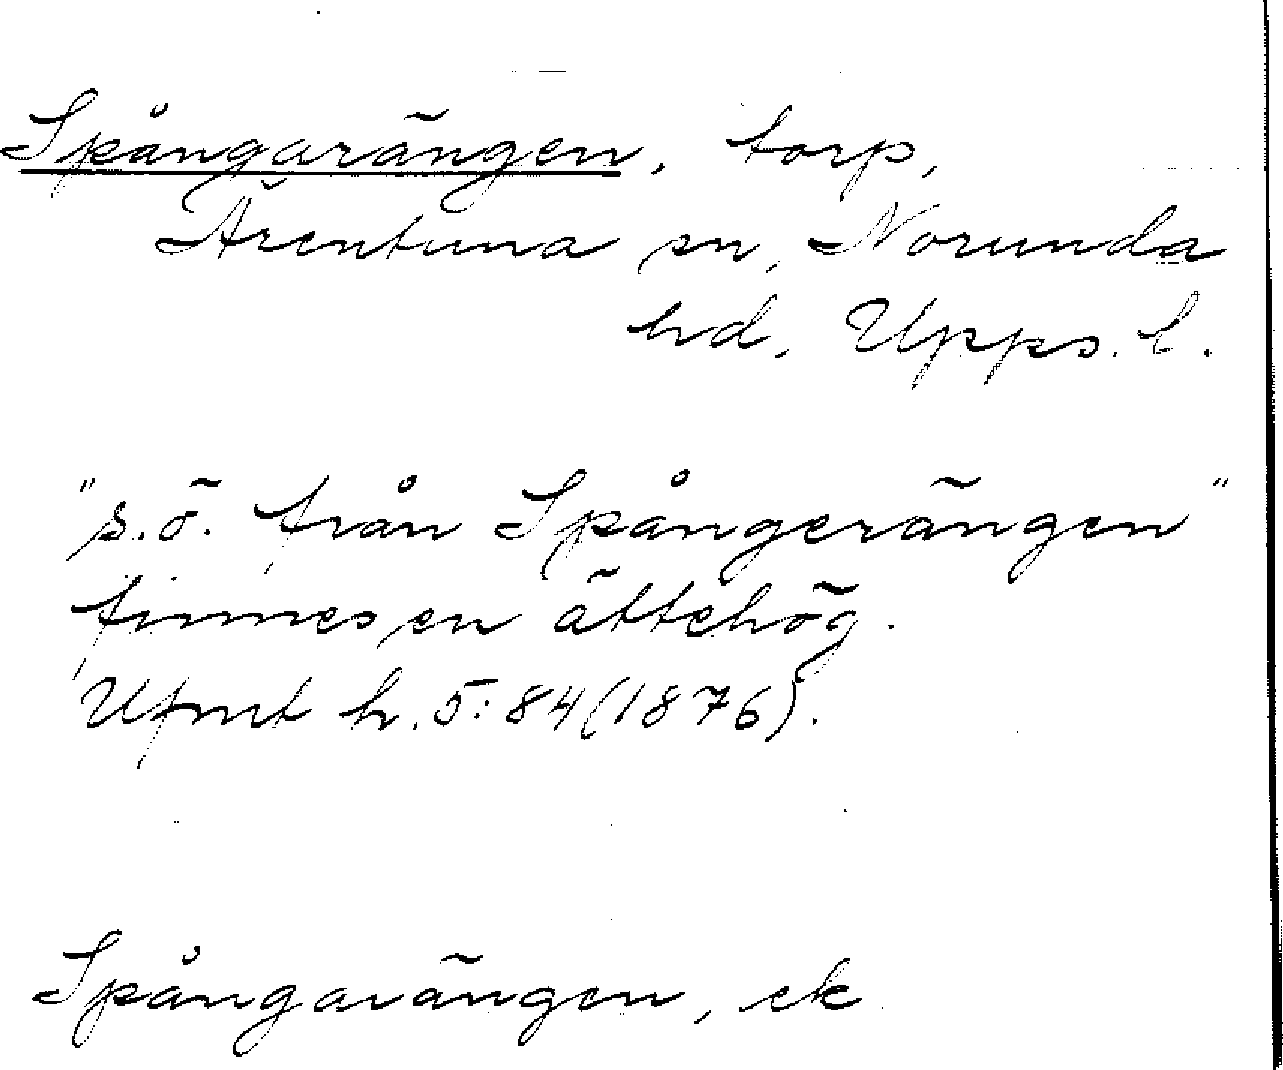 Spångarängen, torp,
Ärentuna sn, Norunda
hd, Upps. l.
"s.ö. från Spångerängen"
finnes en ättehög.
Ufmt h. 5:84 (1876).
Spångarängen, ek